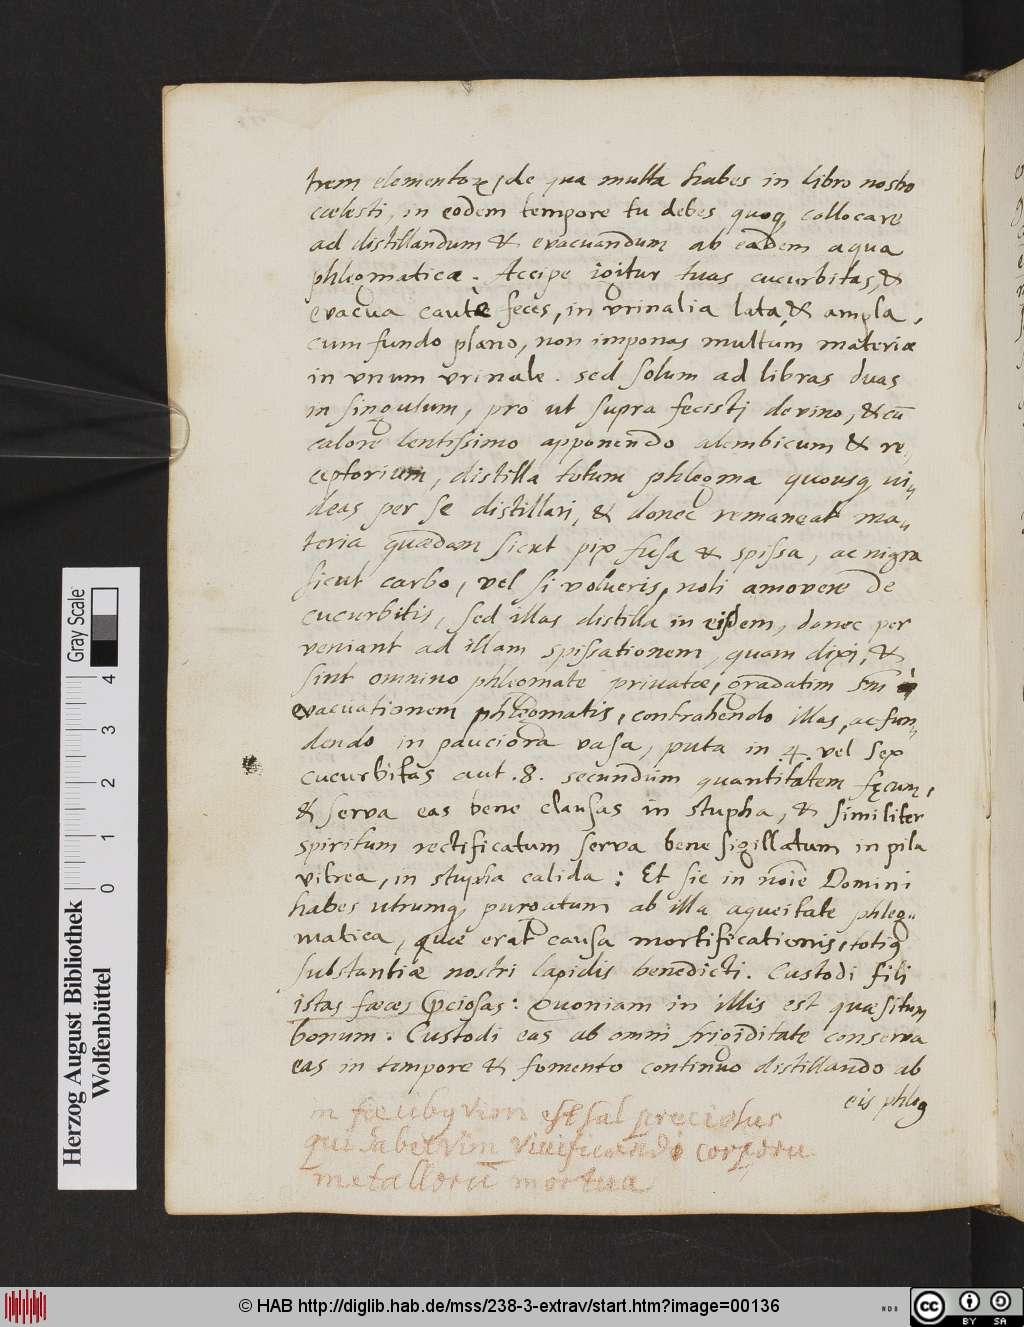 trem elementoꝝ, de qua multa habes in libro nostro
cœlesti, in eodem tempore tu debes quoqꝫ collocare
ad distillandum & evacuandum ab eadem aqua
phlegmatica. Accipe igitur tuas cucurbitas, &
evacua caute feces, in vrinalia lata, & ampla,
cum fundo plano, non imponas multum materiæ
in vnum vrinale. sed solum ad libras duas
in singulum, pro ut supra fecisti de vino, & cū
calore lentissimo apponendo alembicum & re,,
ceptorium, distilla totum phlegma quousqꝫ vi,,
deas per se distillari, & donec remaneat ma,,
teria quædam sicut pix fusa & spissa, ac nigra
sicut carbo, vel si volueris, noli amovere de
cucurbitis, sed illas distilla in eisdem, donec per
veniant ad illam spissationem, quam dixi, &
sint omnino phlegmate privatæ, gradatim
evacuationem phlegmatis, contrahendo illas, ac fun,,
dendo in pauciora vasa, puta in 4. vel sex
cucurbitas aut .8. secundum quantitatem fęcum,
& serva eas bene clausas in stupha, & similiter
spiritum rectificatum serva bene sigillatum in pila
vitrea, in stupha calida: Et sic in noīe Domini
habes utrumqꝫ purgatum ab illa aqueitate phleg,,
matica, quæ erat causa mortificationis, totiꝰ
substantiæ nostri lapidis benedicti. Custodi fili
istas fæces p̄ciosas: Quoniam in illis est quæsitum
bonum. Custodi eas ab omni frigiditate conserva
eas in tempore & fomento continuo distillando ab
eis phleg
in fœcibus vini est sal preciosus
qui habet vim vivificandi corpora
metallorū mortua
Gray Scale
0 1 2 3 4
Herzog August Bibliothek
Wolfenbüttel
© HAB http://diglib.hab.de/mss/238-3-extrav/start.htm?image=00136
cc BY SA